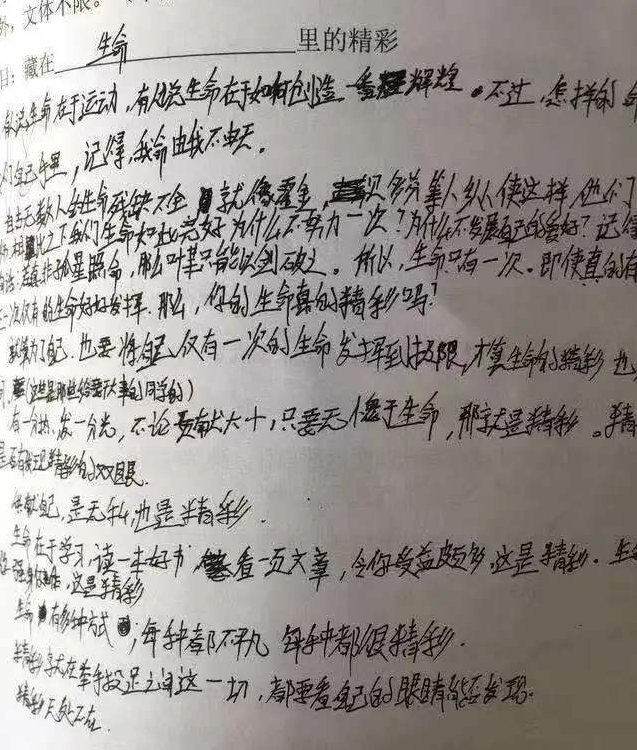 外，文体不限。
目：藏在 生命 里的精彩
有人说生命在于运动，有人说生命在于如何创造辉煌。不过，怎样的命
们自己手里，记得，我命由我不由天。
无数人的生命残缺不全 就像霍金，贝多芬等人 即使这样，他们
相比之下我们生命如此完好为什么不努力一次？为什么不发展自己的爱好？记住
真非孤星照命，那么叶某只能以剑破之。所以，生命只有一次。即使真的有
一次仅有的生命好好发挥.那么，你的生命真的精彩吗？
就算为了自己.也要将自己仅有一次的生命发挥到极限，才算生命的精彩 也
（这是那些给要大事的同学的）
有一分热、发一分光，不论贡献大小，只要无愧于生命，那就是精彩。精
是否有发现精彩的双眼.
自己，是无私，也是精彩.
生命在于学习，读一本好书 看一页文章，令你受益颇多，这是精彩.生
强身，这是精彩
生命有多种方式；每种都不平凡 每种都很精彩.
精彩就在举手投足之间这一切，都要看自己的眼睛能否发现.
精彩无处不在.